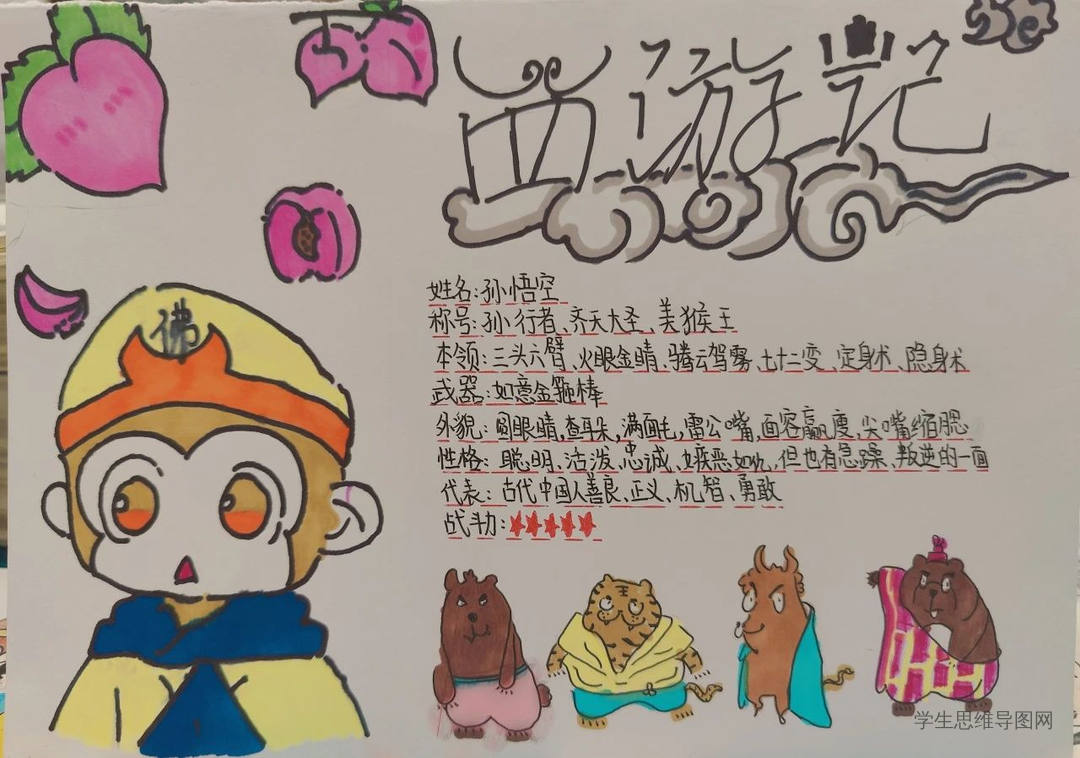 西游记
佛
姓名:孙悟空
称号:孙行者、齐天大圣、美猴王
本领:三头六臂、火眼金睛、腾云驾雾、七十二变、定身术、隐身术
武器:如意金箍棒
外貌:圆眼睛,查耳朵,满面毛,雷公嘴,面容羸瘦,尖嘴缩腮
性格:聪明、活泼、忠诚、嫉恶如仇,但也有急躁、叛逆的一面
代表:古代中国人善良、正义、机智、勇敢
战斗力:★★★★★
学生思维导图网